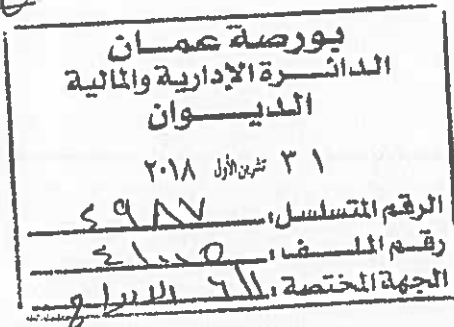 بورصة عمـــان
الدائــــرة الإدارية والمالية
الديـــــوان
٣١ تشرين الأول ٢٠١٨
الرقم المتسلسل: ٤٩٨٧
رقـــم الملـــــف: ٤١٠٠٥
الجهة المختصة: